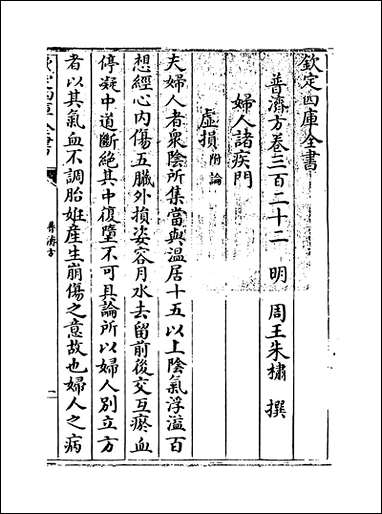 欽定四庫全書
普濟方卷三百二十二 明 周王朱橚 撰
婦人諸疾門
虚損附論
夫婦人者衆陰所集當與温居十五以上陰氣浮溢百
想經心内傷五臟外損姿容月水去留前後交互瘀血
停凝中道斷絶其中復墮不可具論所以婦人别立方
者以其氣血不調胎姙産生崩傷之意故也婦人之病
普濟方